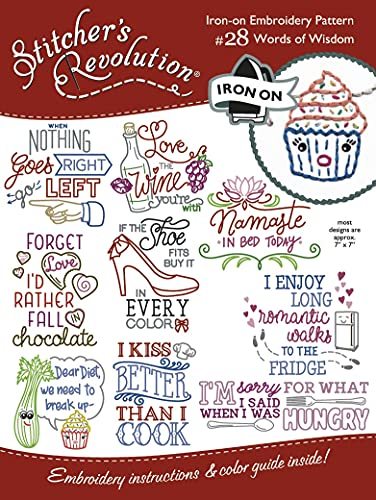 Stitcher's
Revolution®
Iron-on Embroidery Pattern
#28 Words of Wisdom
IRON ON
WHEN
NOTHING
Goes RIGHT
go LEFT
Love
THE
Wine
you're
with
Namaste
IN BED TODAY
most
designs are
approx.
7" x 7"
FORGET
Love
I'D
RATHER
FALL IN
chocolate
IF THE
Shoe
FITS
BUY IT
IN
EVERY
COLOR
I ENJOY
LONG
romantic
walks
TO THE
FRIDGE
Dear Diet,
we need to
break up~
I KISS
BETTER
THAN I
COOK
I'M sorry FOR WHAT
I SAID
WHEN I WAS HUNGRY
Embroidery instructions & color guide inside!